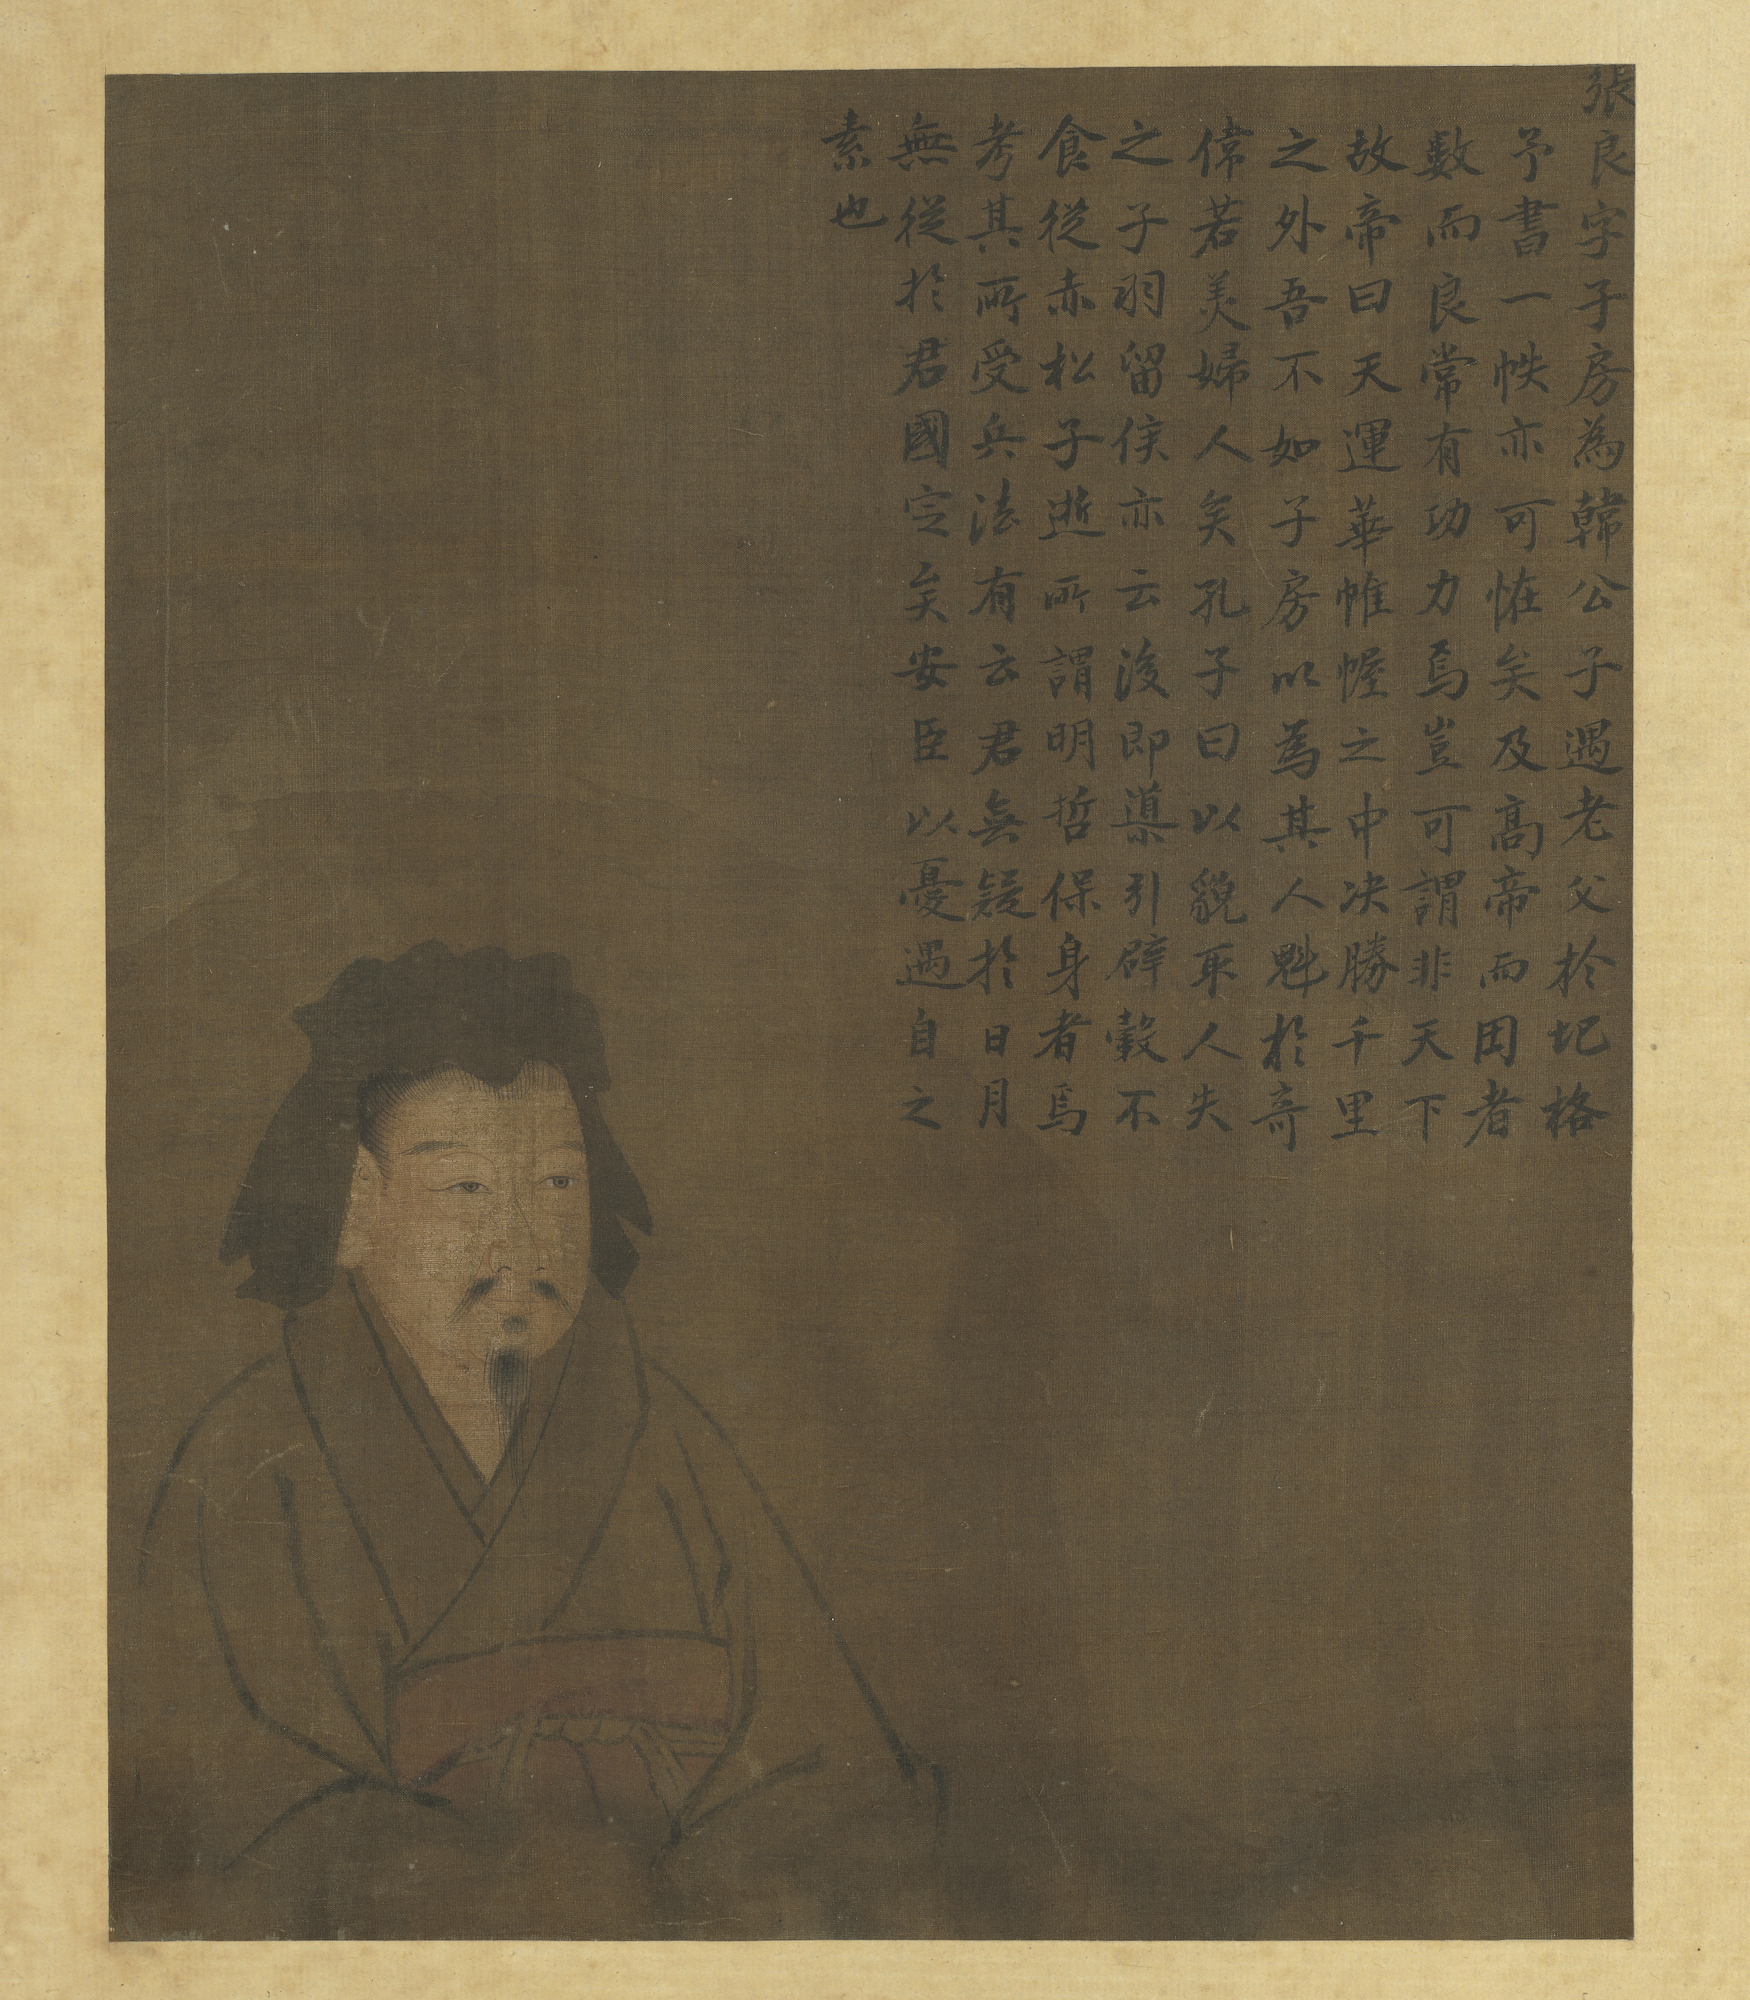 張良字子房為韓公子遇老父於圯格
予書一帙亦可恠矣及高帝而困者
數而良常有功力焉豈可謂非天下
故帝曰天運華帷幄之中决勝千里
之外吾不如子房以為其人魁於奇
偉若美婦人矣孔子曰以貌取人失
之子羽留侯亦云後即導引辟穀不
食從赤松子逝所謂明哲保身者焉
考其所受兵法有云君無疑於日月
無從於君國定矣安臣以憂遇自之
素也